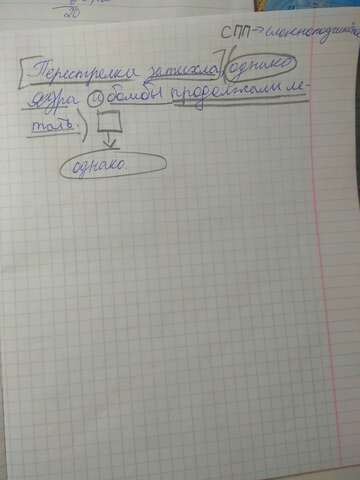 20
СПП → сложноподчинён
[Перестрелка затихла], (однако
ядра и бомбы продолжали ле-
тать.)
однако.